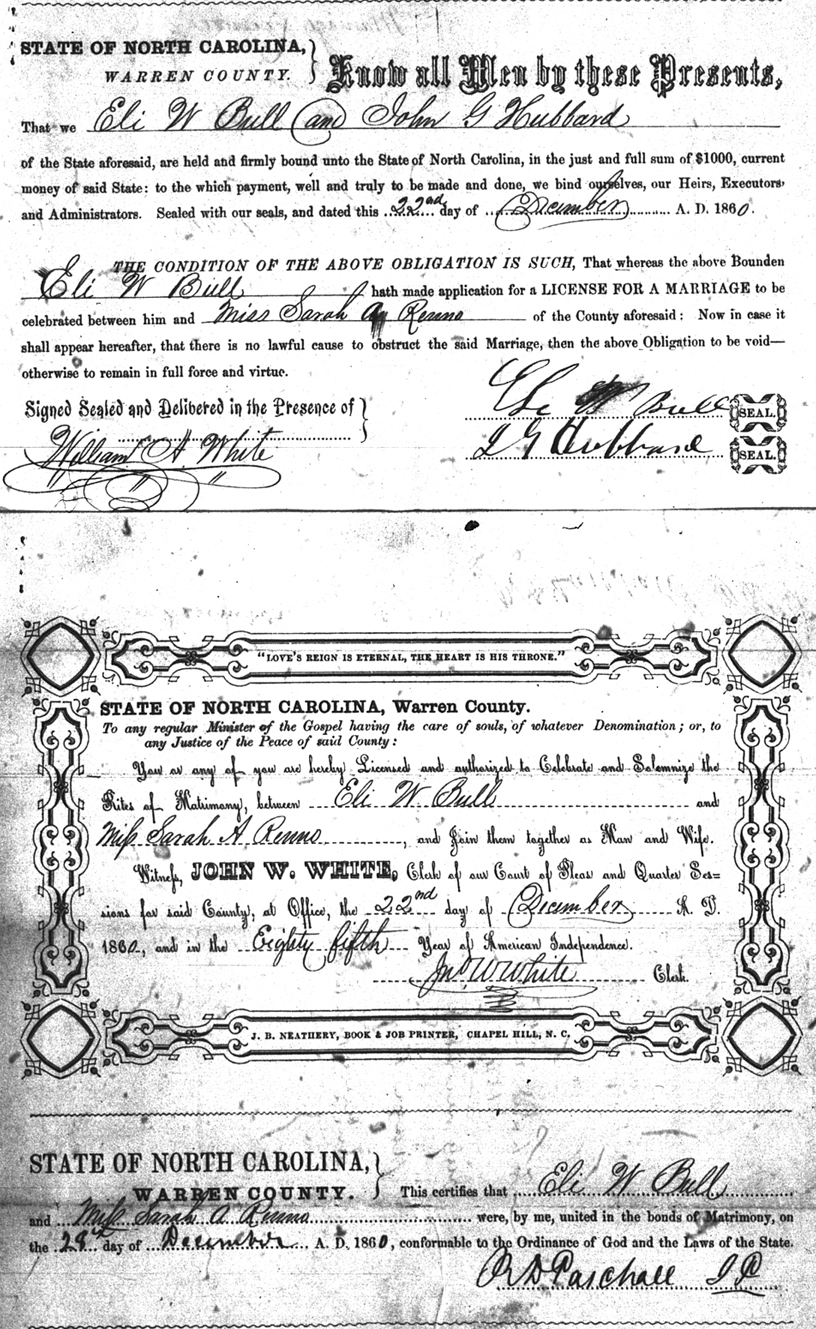 STATE OF NORTH CAROLINA,
WARREN COUNTY.
Know all Men by these Presents,
That we Eli W Bull and John G Hubbard
of the State aforesaid, are held and firmly bound unto the State of North Carolina, in the just and full sum of $1000, current
money of said State: to the which payment, well and truly to be made and done, we bind ourselves, our Heirs, Executors
and Administrators. Sealed with our seals, and dated this 22nd day of December A. D. 1860.
THE CONDITION OF THE ABOVE OBLIGATION IS SUCH, That whereas the above Bounden
Eli W Bull hath made application for a LICENSE FOR A MARRIAGE to be
celebrated between him and Miss Sarah A Renno of the County aforesaid: Now in case it
shall appear hereafter, that there is no lawful cause to obstruct the said Marriage, then the above Obligation to be void—
otherwise to remain in full force and virtue.
Signed Sealed and Delivered in the Presence of
Eli W Bull SEAL.
William A White
J G Hubbard SEAL.
"LOVE'S REIGN IS ETERNAL, THE HEART IS HIS THRONE."
STATE OF NORTH CAROLINA, Warren County.
To any regular Minister of the Gospel having the care of souls, of whatever Denomination; or, to
any Justice of the Peace of said County:
You or any of you are hereby Licensed and authorized to Celebrate and Solemnize the
Rites of Matrimony, between Eli W Bull and
Miss Sarah A Renno, and Join them together as Man and Wife.
Witness, JOHN W. WHITE, Clerk of our Court of Pleas and Quarter Ses=
sions for said County, at Office, the 22nd day of December A. D.
1860, and in the Eighty fifth Year of American Independence.
Jno W White Clerk.
J. B. NEATHERY, BOOK & JOB PRINTER, CHAPEL HILL, N. C.
STATE OF NORTH CAROLINA,
WARREN COUNTY.
This certifies that Eli W Bull
and Miss Sarah A Renno were, by me, united in the bonds of Matrimony, on
the day of December A. D. 1860, conformable to the Ordinance of God and the Laws of the State.
R D Paschall J P